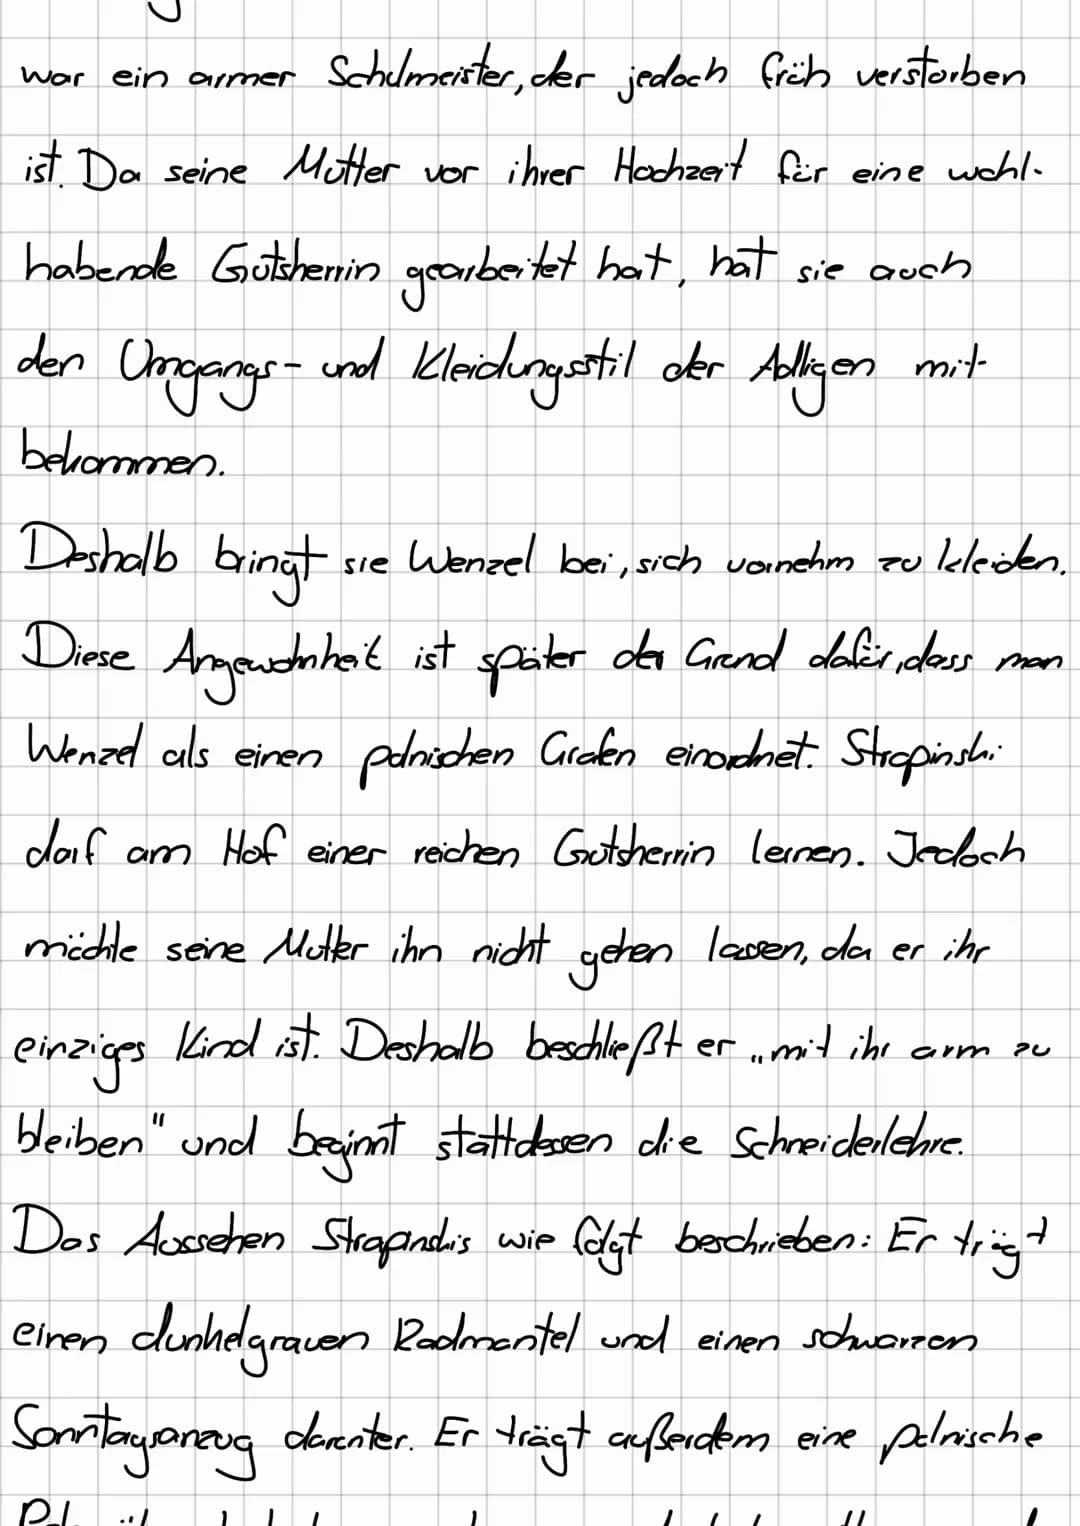 war ein armer Schulmeister, der jedoch früh verstorben
ist. Da seine Mutter vor ihrer Hochzeit für eine wohl-
habende Gutsherrin gearbeitet hat, hat sie auch
den Umgangs- und Kleidungsstil der Adligen mit-
bekommen.
Deshalb bringt sie Wenzel bei, sich vornehm zu kleiden.
Diese Angewohnheit ist später der Grund dafür, dass man
Wenzel als einen polnischen Grafen einordnet. Strapinski
darf am Hof einer reichen Gutsherrin lernen. Jedoch
möchte seine Mutter ihn nicht gehen lassen, da er ihr
einziges Kind ist. Deshalb beschließt er „mit ihr arm zu
bleiben" und beginnt stattdessen die Schneiderlehre.
Das Aussehen Strapinskis wie folgt beschrieben: Er trägt
einen dunkelgrauen Radmantel und einen schwarzen
Sonntagsanzug darunter. Er trägt außerdem eine polnische